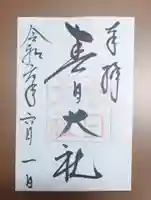 奉拝
春日大社
令和六年六月一日